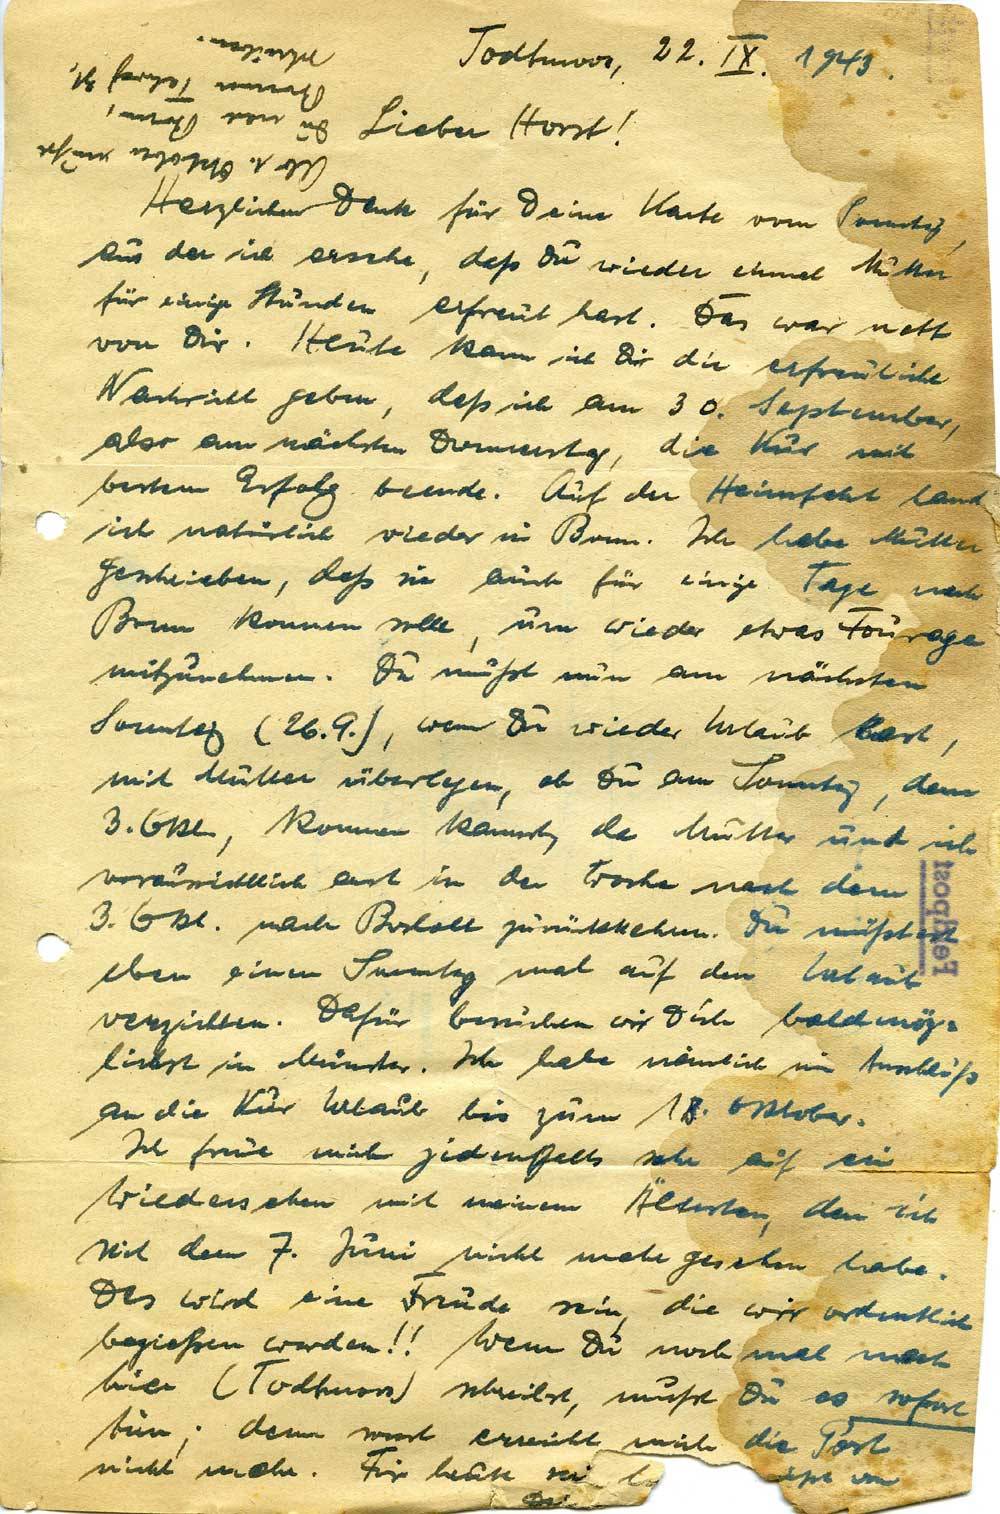 Todtmoos, 22. IX. 1943.
Lieber Horst!
Herzlichen Dank für Deine Karte vom Sonntag,
aus der ich ersehe, daß Du wieder einmal Mutter
für einige Stunden erfreut hast. Das war nett
von Dir. Heute kann ich Dir die erfreuliche
Nachricht geben, daß ich am 30. September,
also am nächsten Donnerstag, die Kur mit
bestem Erfolg beende. Auf der Heimfahrt lande
ich natürlich wieder in Bonn. Ich habe Mutter
geschrieben, daß sie auch für einige Tage nach
Bonn kommen solle, um wieder etwas Fourage
mitzunehmen. Du mußt nun am nächsten
Sonntag (26.9.), wenn Du wieder Urlaub hast,
mit Mutter überlegen, ob Du am Sonntag, dem
3. Okt., kommen kannst, da Mutter und ich
voraussichtlich erst in der Woche nach dem
3. Okt. nach Bocholt zurückkehren. Du müßtest
eben einen Sonntag mal auf den Urlaub
verzichten. Dafür besuchen wir Dich baldmög-
lichst in Münster. Ich habe nämlich im Anschluß
an die Kur Urlaub bis zum 18. Oktober.
Ich freue mich jedenfalls sehr auf ein
Wiedersehen mit meinem Ältesten, den ich
seit dem 7. Juni nicht mehr gesehen habe.
Das wird eine Freude sein, die wir ordentlich
begießen werden!! Wenn Du noch mal nach
hier (Todtmoos) schreibst, mußt Du es sofort
tun; denn sonst erreicht mich die Post
nicht mehr. Für heute sei von
Ab 1. Oktober mußt
Du nach Bonn,
schreiben.
Feldpost